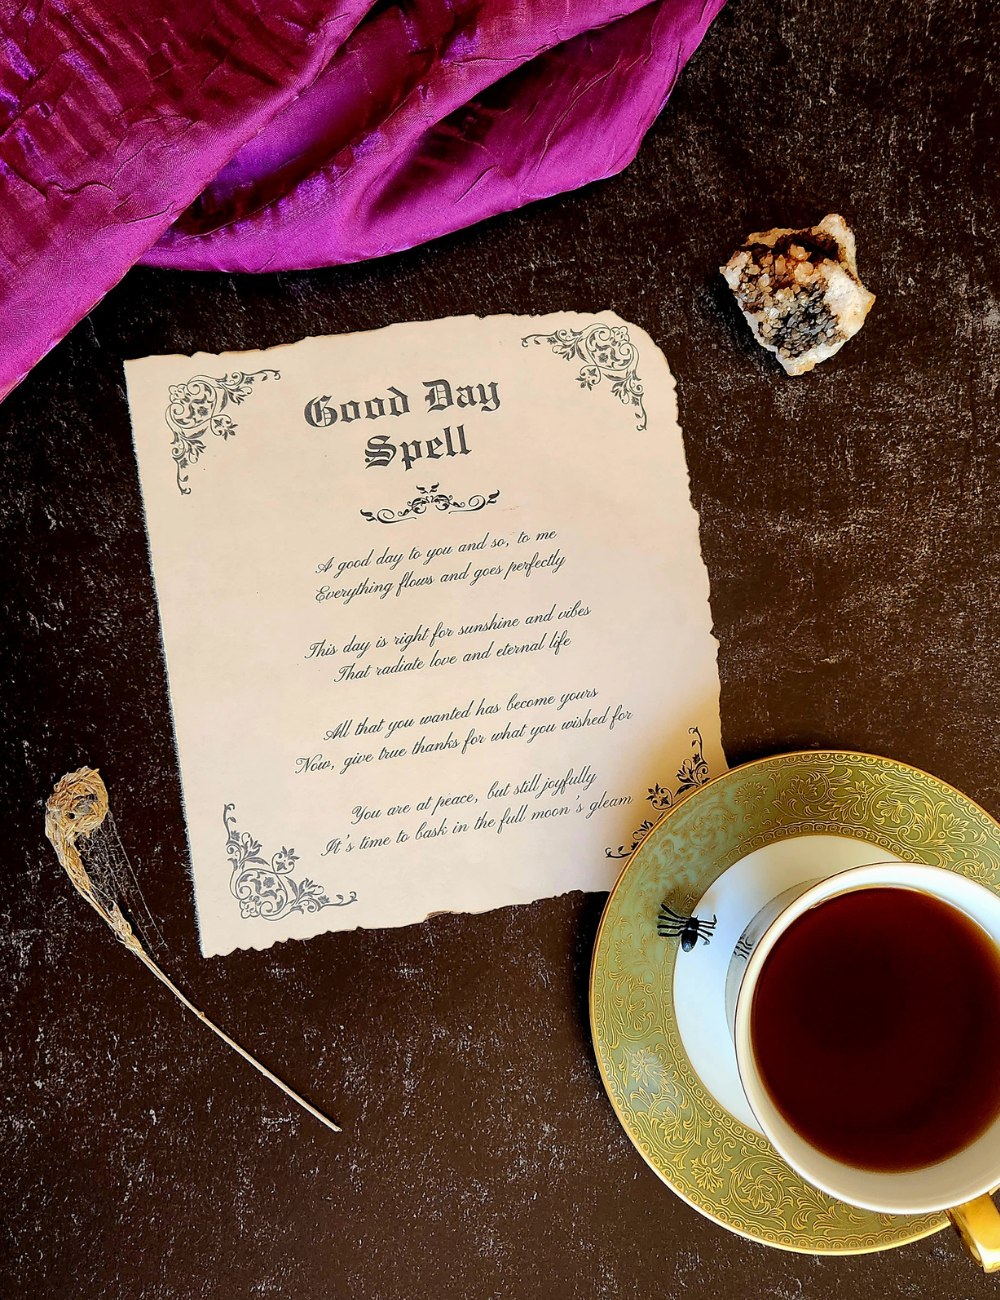 Good Day
Spell
A good day to you and so, to me
Everything flows and goes perfectly
This day is right for sunshine and vibes
That radiate love and eternal life
All that you wanted has become yours
Now, give true thanks for what you wished for
You are at peace, but still joyfully
It's time to bask in the full moon's gleam